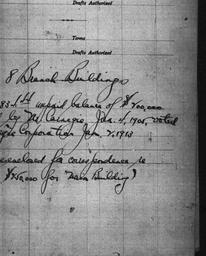 Drafts Authorized
Terms
Drafts Authorized
8 Branch Buildings
unpaid balance of $
by The Carnegie Jan. 4, 1905, voted
Corporation Jan. 2, 1913
for correspondence re
for "Main Building"